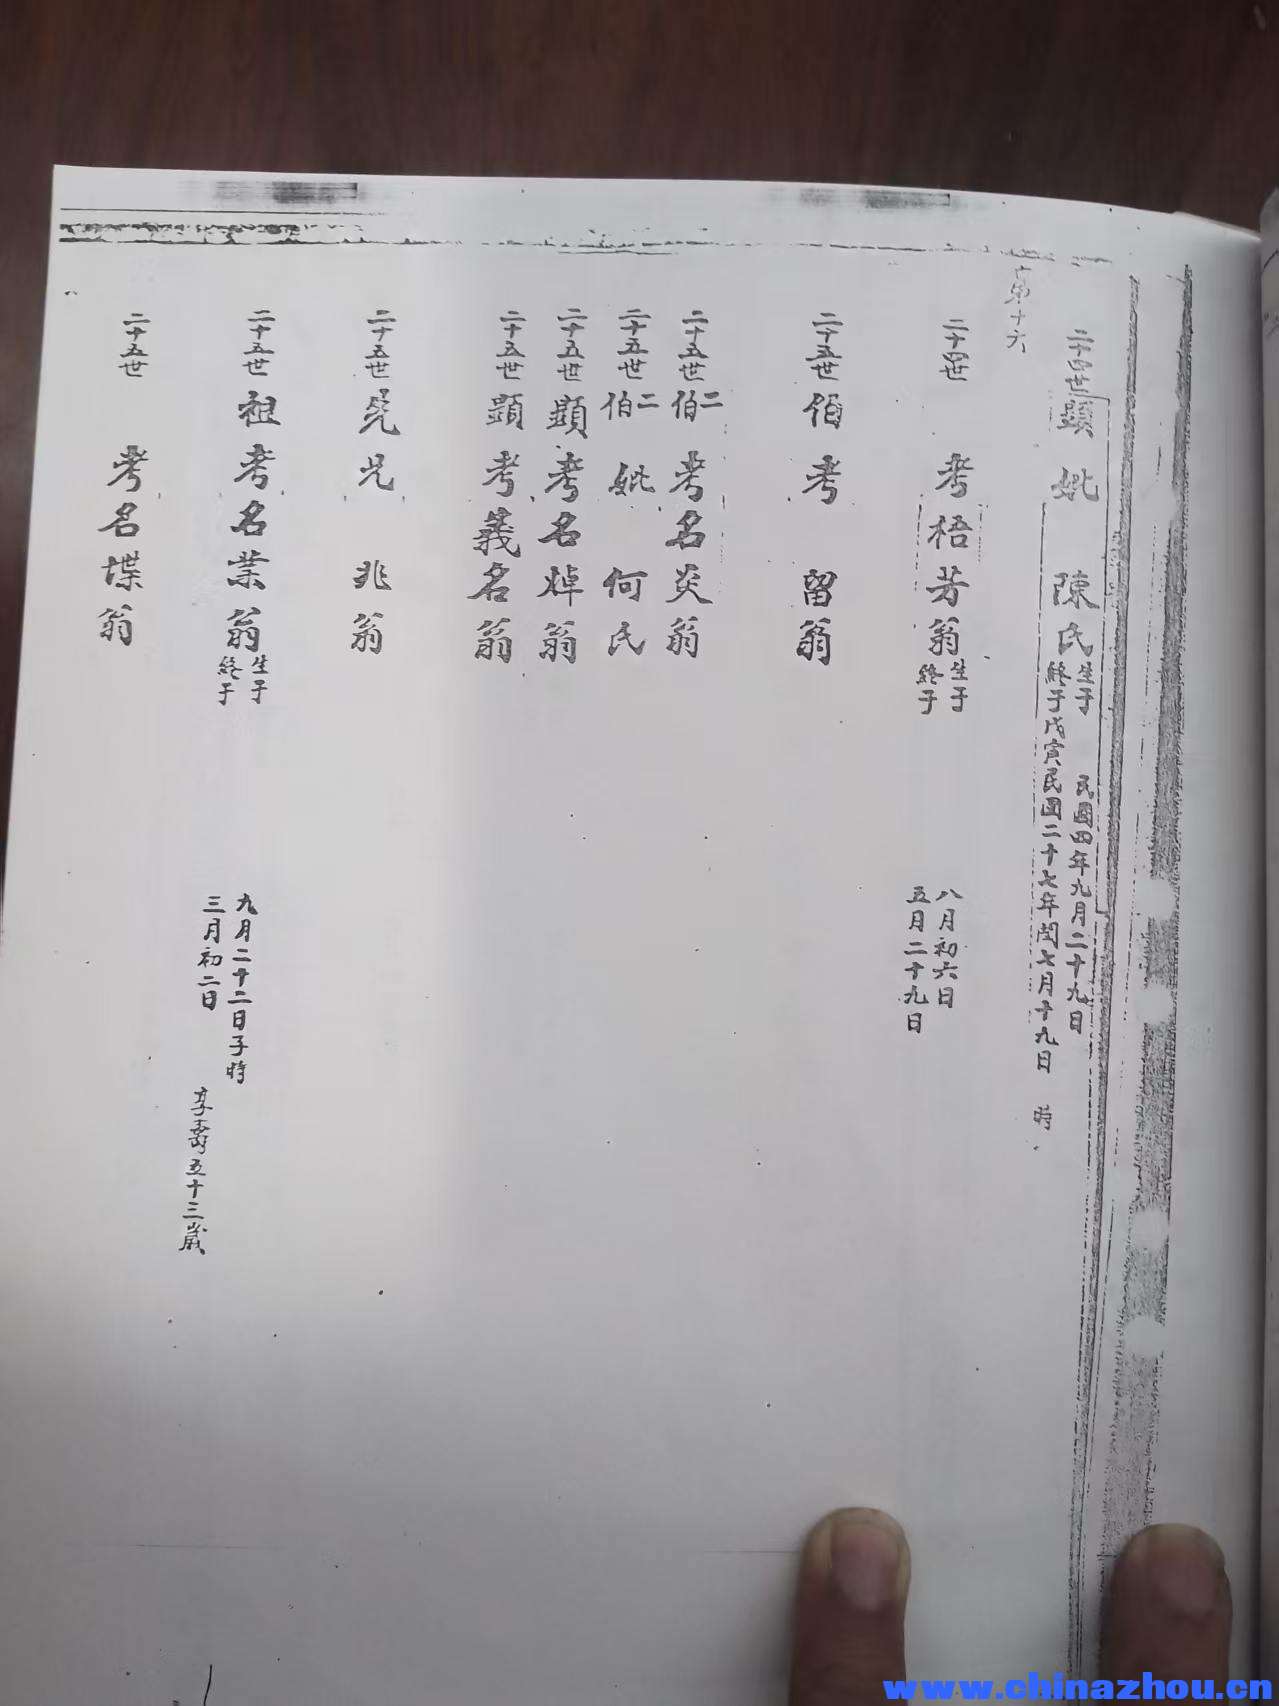 二十四世顯妣陳氏生于 民國四年九月二十九日
終于戊寅民國二十七年閏七月十九日 時
第十六
二十四世 考梧芳翁生于 八月初六日
終于 五月二十九日
二十五世伯考 留翁
二十五世二伯考名炎翁
二十五世二伯妣何氏
二十五世顯考名焯翁
二十五世顯考義名翁
二十五世 兄 兆翁
二十五世祖考名業翁生于 九月二十二日子時
終于 三月初二日 享壽五十三歲
二十五世 考名堞翁
www.chinazhou.cn